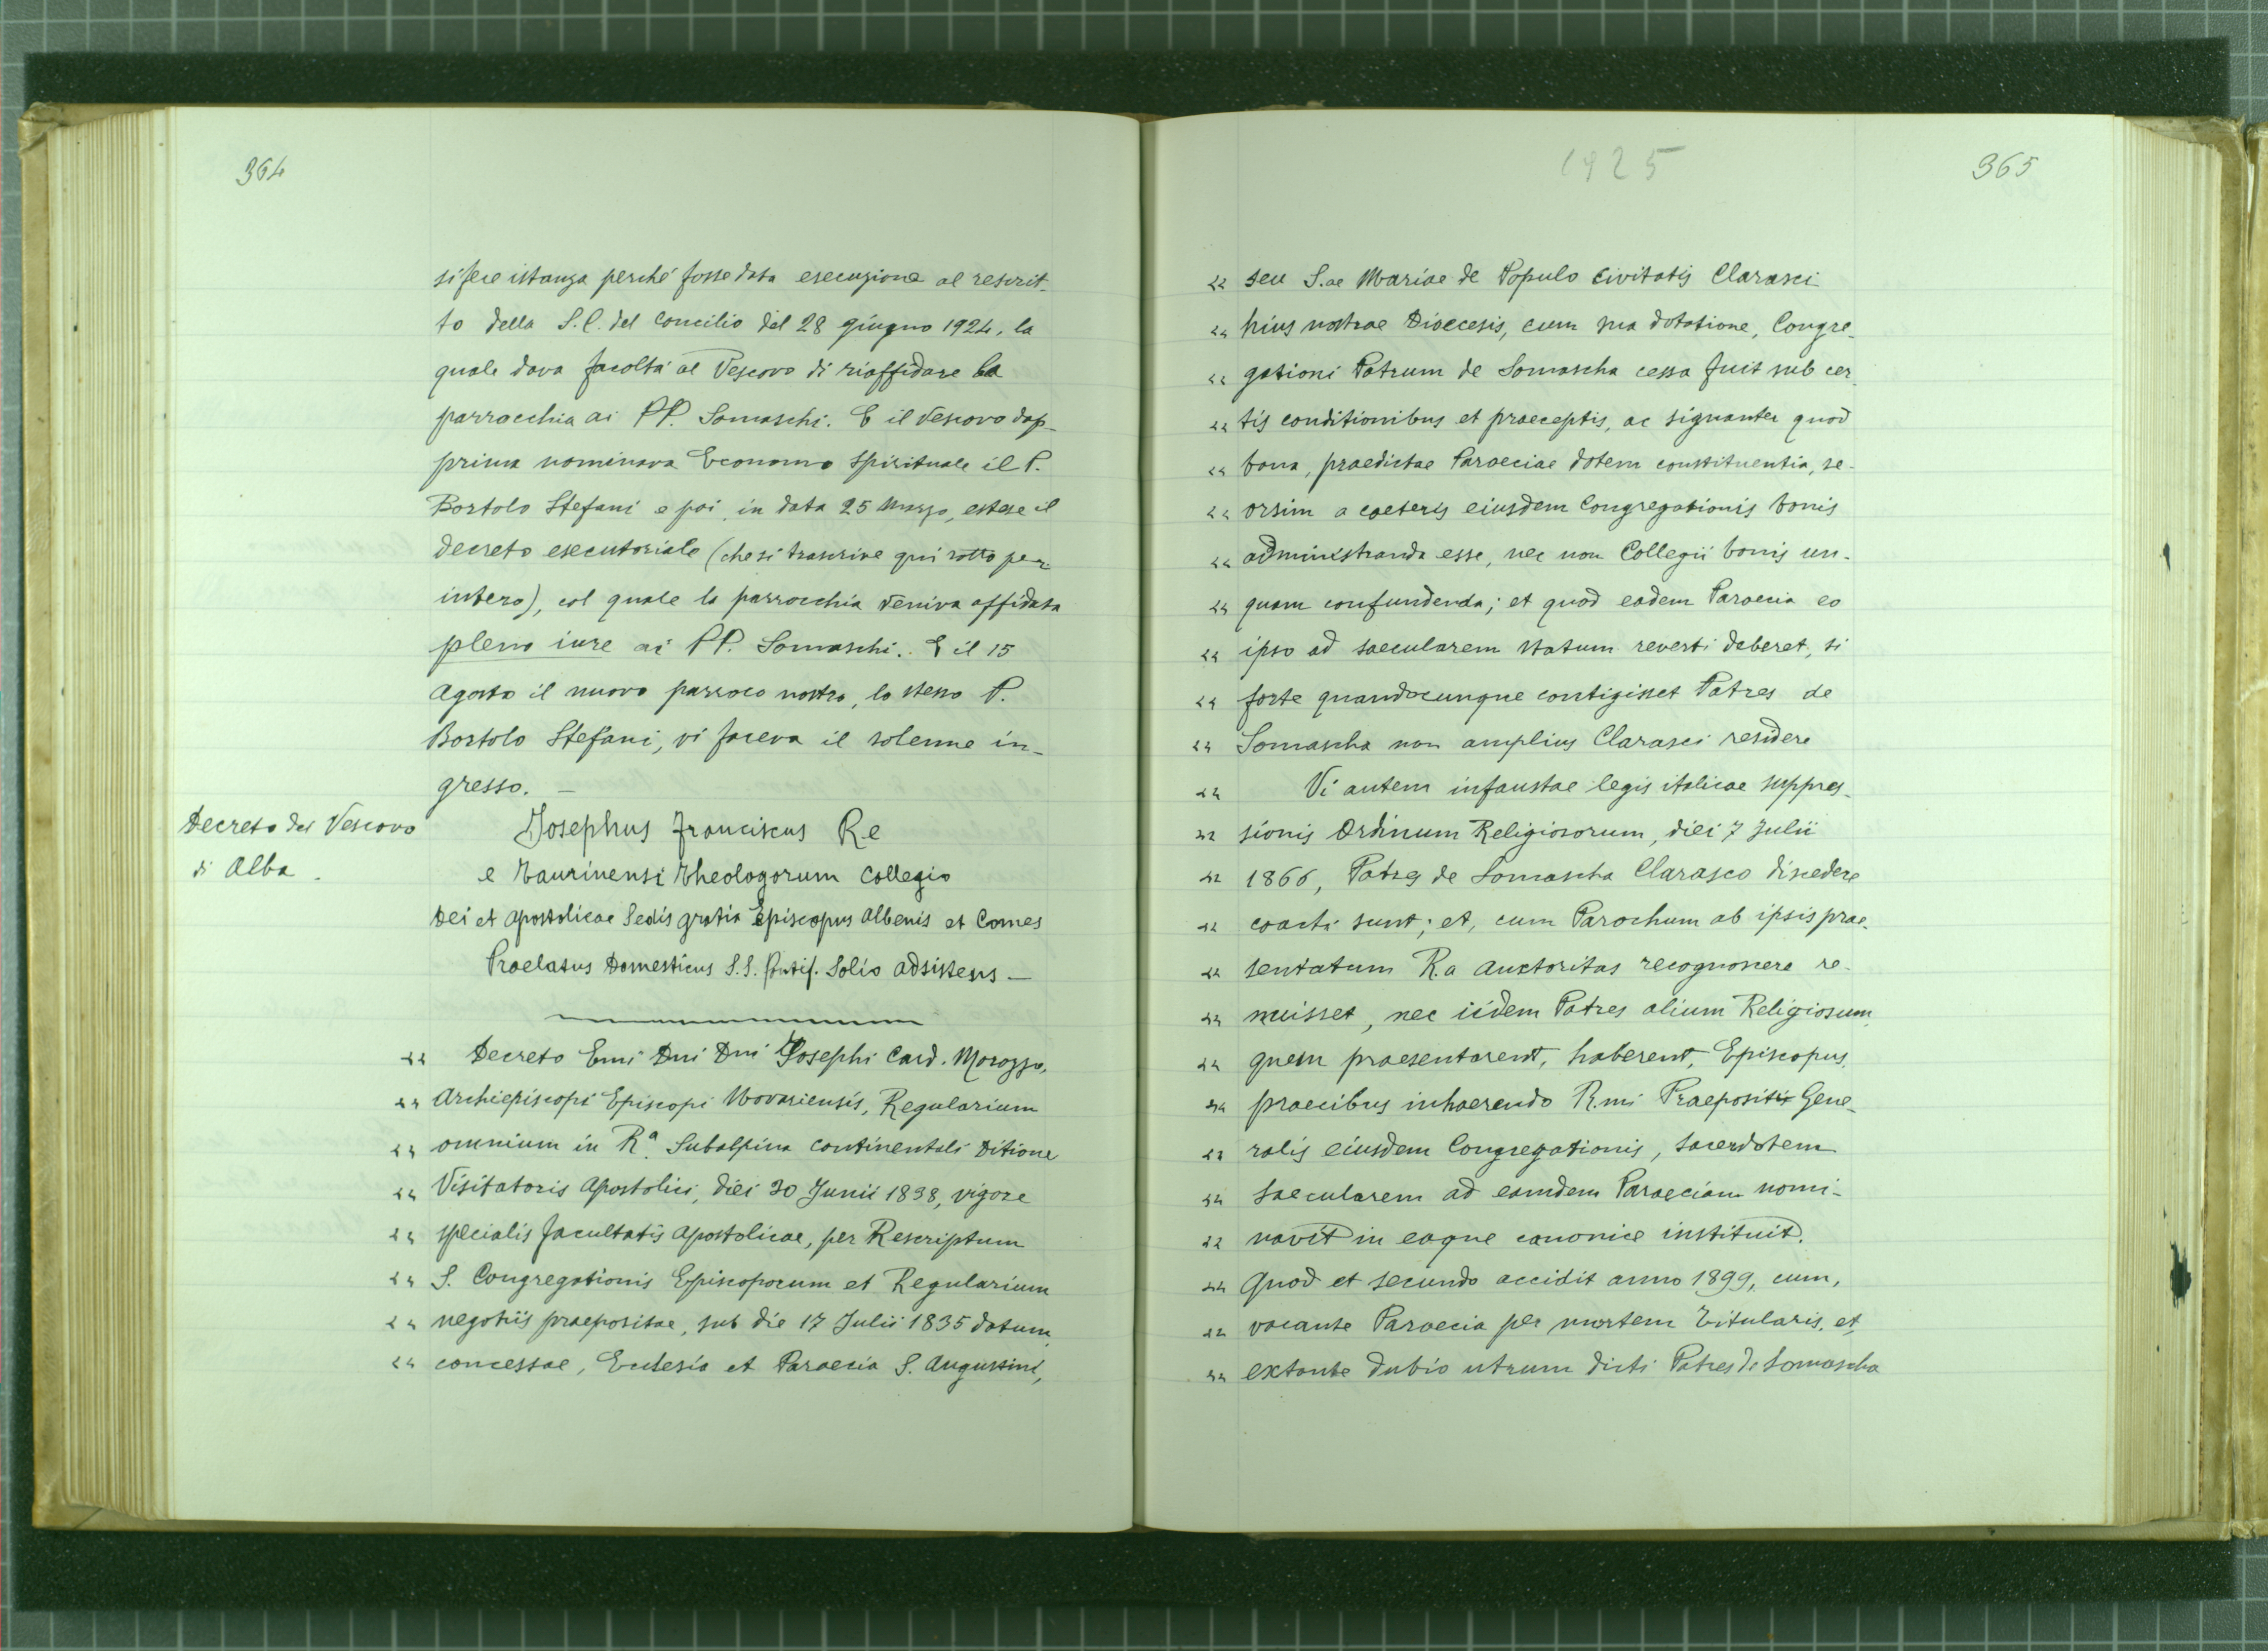 364
si fece istanza perché fosse data esecuzione al rescrit-
to della S.C. del Concilio del 28 giugno 1924, la
quale dava facoltà al Vescovo di riaffidare la
parrocchia ai PP. Somaschi. E il Vescovo dap-
prima nominava Economo spirituale il P.
Bortolo Stefani e poi, in data 25 Marzo, estese il
decreto esecutoriale (che si trascrive qui sotto per
intero), col quale la parrocchia veniva affidata
pleno iure ai PP. Somaschi. E il 15
Agosto il nuovo parroco nostro, lo stesso P.
Bortolo Stefani, vi faceva il solenne in-
gresso. —
Decreto del Vescovo
di Alba.
Josephus Franciscus Re
e Taurinensi Theologorum Collegio
Dei et Apostolicae Sedis gratia Episcopus Albensis et Comes
Praelatus Domesticus S.S. Pontif. Solio adsistens —
“ Decreto Emi Dni Dni Josephi Card. Morozzo,
“ Archiepiscopi Episcopi Novariensis, Regularium
“ omnium in Rª Subalpina continentali Ditione
“ Visitatoris Apostolici, diei 30 Junii 1838, vigore
“ specialis facultatis Apostolicae, per Rescriptum
“ S. Congregationis Episcoporum et Regularium
“ negotiis praepositae, sub die 17 Julii 1835 datum
“ concessae, Eclesia et Paroecia S. Augustini,
1925
365
“ seu S.ae Mariae de Populo Civitatis Clarasci
“ huius nostrae Dioecesis, cum sua dotatione, Congre-
“ gationi Patrum de Somascha cessa fuit sub cer-
“ tis conditionibus et praeceptis, ac signanter quod
“ bona, praedictae Paroeciae dotem constituentia, se-
“ orsim a caeteris eiusdem Congregationis bonis
“ administranda esse, nec non Collegii bonis un-
“ quam confundenda; et quod eadem Paroecia eo
“ ipso ad saecularem statum reverti deberet, si
“ forte quandocunque contigisset Patres de
“ Somascha non amplius Clarasci residere
“ Vi autem infaustae legis italicae suppres-
“ sionis Ordinum Religiosorum, diei 7 Julii
“ 1866, Patres de Somascha Clarasco discedere
“ coacti sunt; et, cum Parochum ab ipsis prae-
“ sentatum R.a Auctoritas recognoscere re-
“ nuisset, nec iidem Patres alium Religiosum,
“ quem praesentarent, haberent, Episcopus,
“ praecibus inhaerendo R.mi Praepositi Gene-
“ ralis eiusdem Congregationis, sacerdotem
“ saecularem ad eamdem Paroeciam nomi-
“ navit in eaque canonice instituit.
“ Quod et secundo accidit anno 1899, cum,
“ vacante Paroecia per mortem Titularis, et
“ extante dubio utrum dicti Patres de Somascha